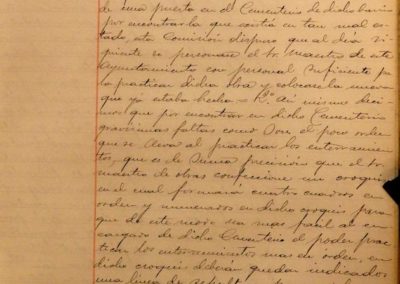 de una puerta en el Cementerio de dicho barrio
por encontrarla que existía en tan mal es-
tado, esta Comisión dispuso que al día si-
guiente se personase el Sr. Maestro de este
Ayuntamiento con personal suficiente pa
la practicar dicha obra y colocase la nueva
que ya estaba hecha = Así mismo deci-
mos que por encontrar en dicho Cementerio
gravísimas faltas como son, el poco orden
que se lleva al practicar los enterramien-
tos, que es de suma precisión que el Sr.
maestro de obras confeccione un croquis
en el cual formará cuatro cuadros en
orden y numerados en dicho croquis para
que de este modo sea mas fácil al en-
cargado de dicho Cementerio el poder prac-
ticar los enterramientos mas en orden, en
dicho croquis deberán quedar indicados
una línea de